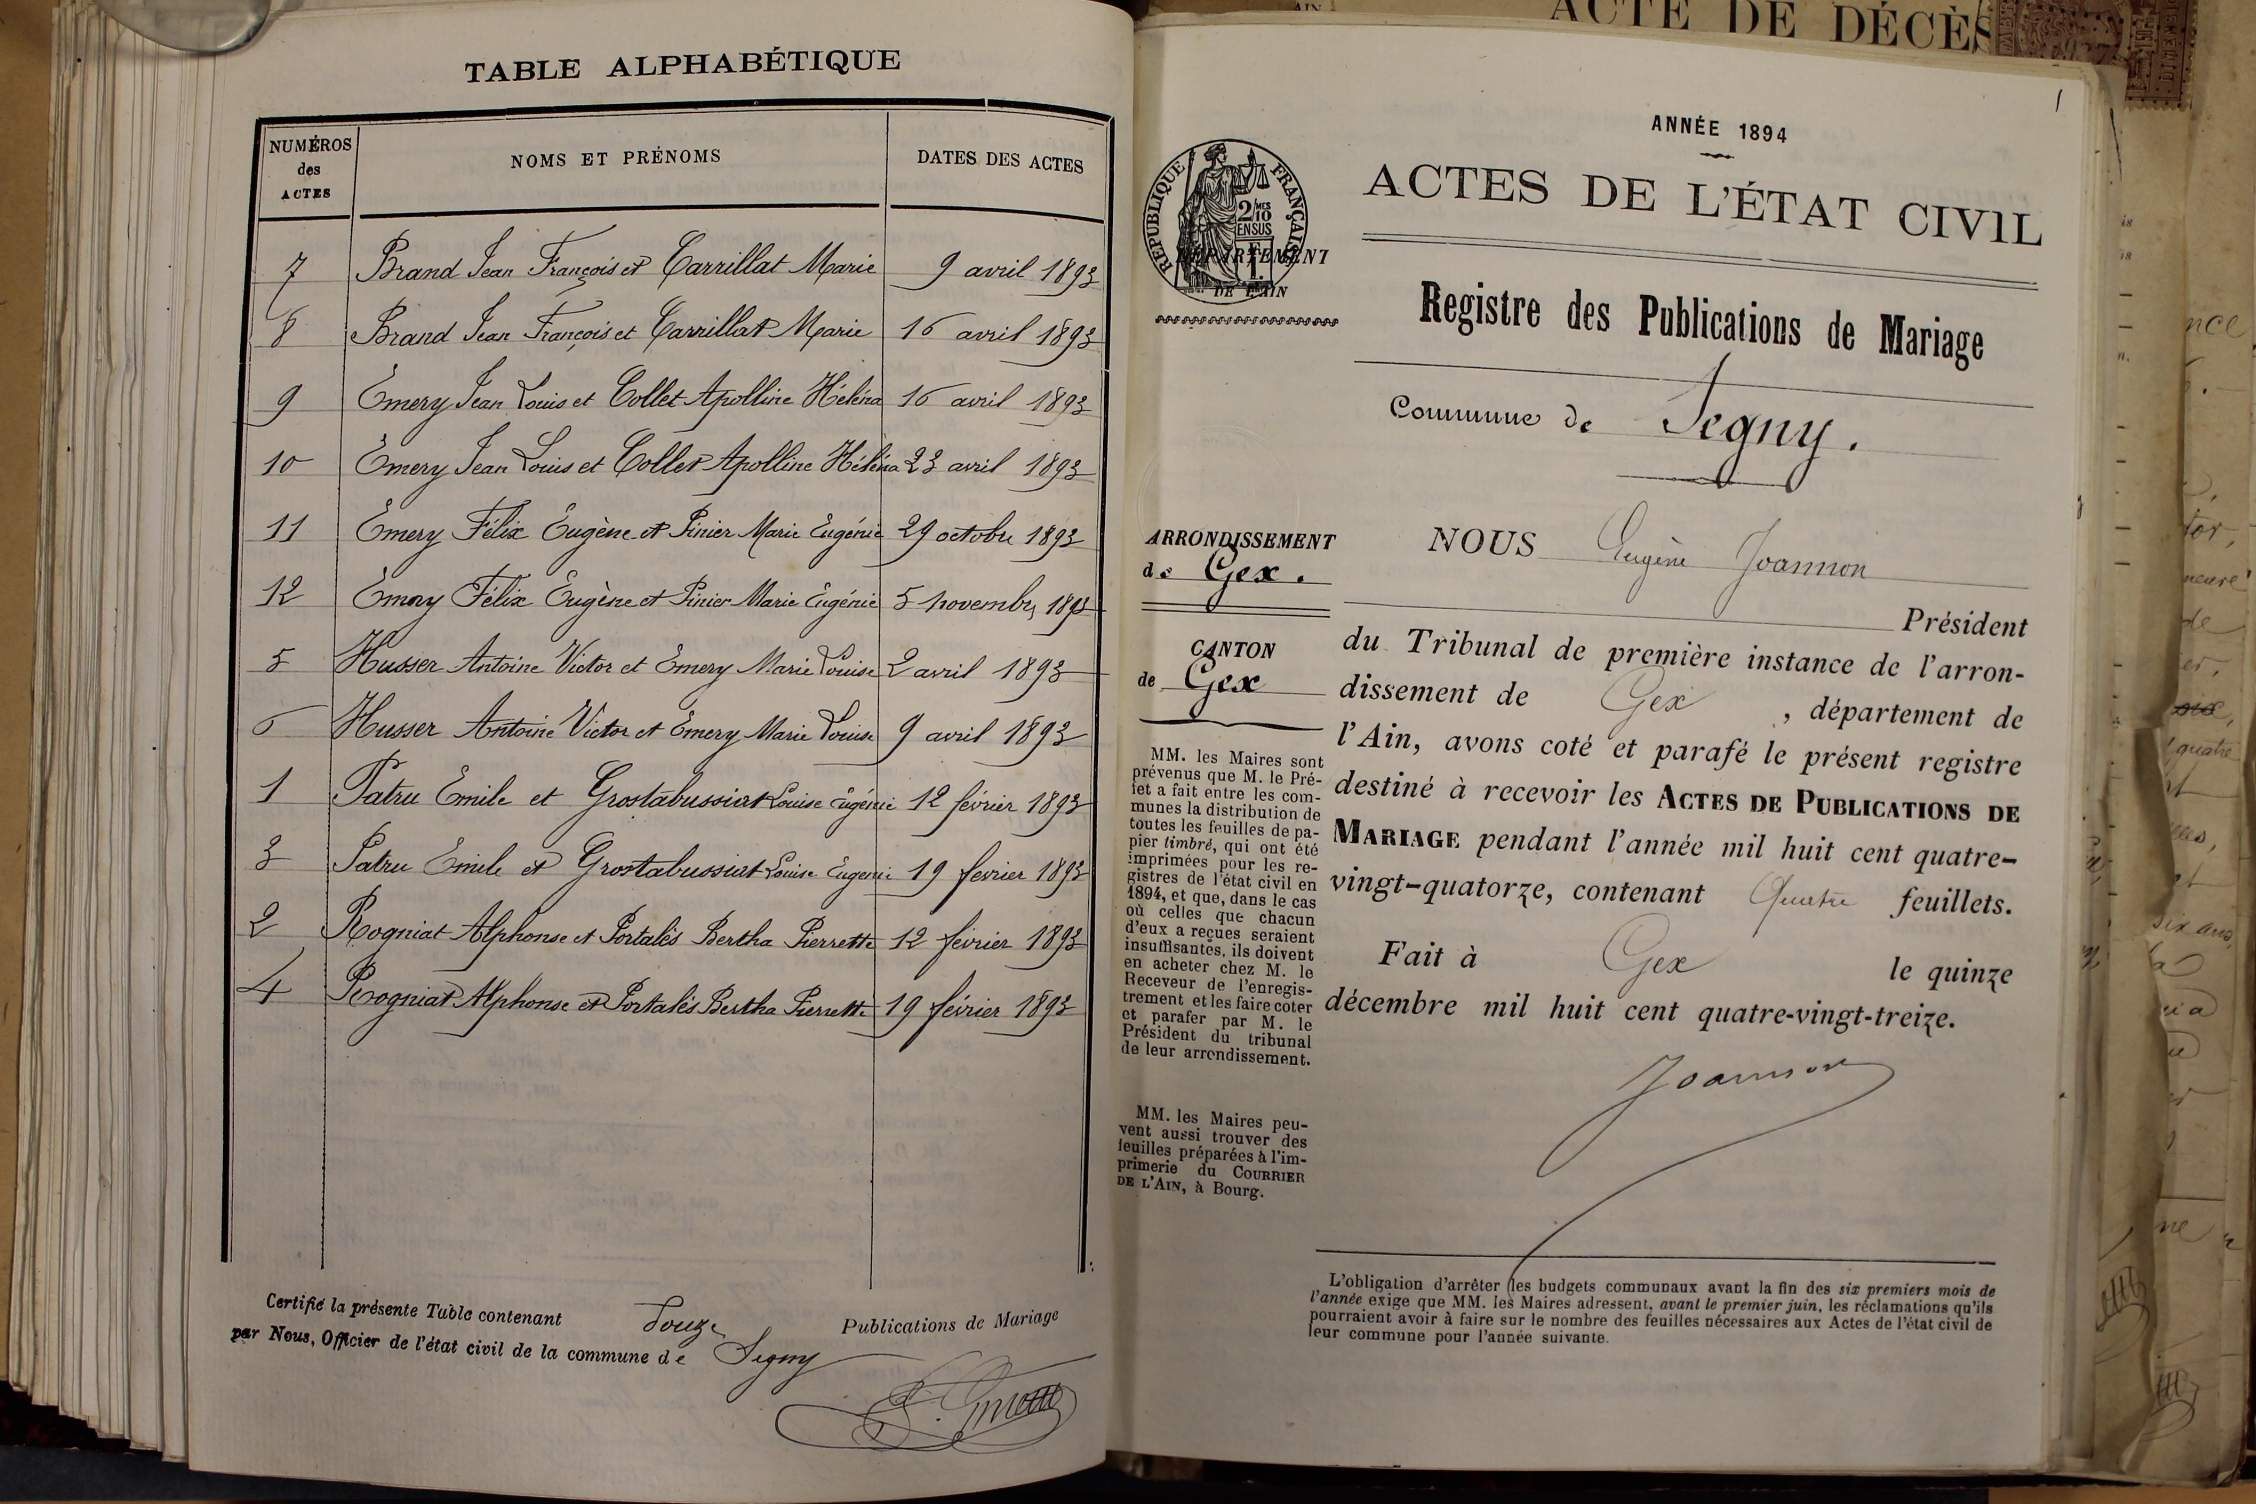 TABLE ALPHABÉTIQUE
NUMÉROS des ACTES
NOMS ET PRÉNOMS
DATES DES ACTES
7 Brand Jean François et Carrillat Marie 9 avril 1893
8 Brand Jean François et Carrillat Marie 16 avril 1893
9 Emery Jean Louis et Collet Apolline Héléna 16 avril 1893
10 Emery Jean Louis et Collet Apolline Héléna 23 avril 1893
11 Emery Félix Eugène et Pinier Marie Eugénie 29 octobre 1893
12 Emery Félix Eugène et Pinier Marie Eugénie 5 novembre 1893
5 Husser Antoine Victor et Emery Marie Louise 2 avril 1893
6 Husser Antoine Victor et Emery Marie Louise 9 avril 1893
1 Patru Emile et Grostabussiat Louise Eugénie 12 février 1893
3 Patru Emile et Grostabussiat Louise Eugenie 19 fevrier 1893
2 Rogniat Alphonse et Portalès Bertha Pierrette 12 février 1893
4 Rogniat Alphonse et Portalès Bertha Pierrette 19 février 1893
Certifié la présente Table contenant Douze Publications de Mariage
par Nous, Officier de l'état civil de la commune de Segny
ACTE DE DÉCÈS
AIN
1
ANNÉE 1894
ACTES DE L'ÉTAT CIVIL
RÉPUBLIQUE FRANÇAISE
2/10 MES
EN SUS
DÉPARTEMENT
DE L'AIN
Registre des Publications de Mariage
Commune de Segny.
ARRONDISSEMENT
de Gex.
CANTON
de Gex
MM. les Maires sont
prévenus que M. le Pré-
fet a fait entre les com-
munes la distribution de
toutes les feuilles de pa-
pier timbré, qui ont été
imprimées pour les re-
gistres de l'état civil en
1894, et que, dans le cas
où celles que chacun
d'eux a reçues seraient
insuffisantes, ils doivent
en acheter chez M. le
Receveur de l'enregis-
trement et les faire coter
et parafer par M. le
Président du tribunal
de leur arrondissement.
MM. les Maires peu-
vent aussi trouver des
feuilles préparées à l'im-
primerie du COURRIER
DE L'AIN, à Bourg.
NOUS Eugène Joannon
Président
du Tribunal de première instance de l'arron-
dissement de Gex, département de
l'Ain, avons coté et parafé le présent registre
destiné à recevoir les ACTES DE PUBLICATIONS DE
MARIAGE pendant l'année mil huit cent quatre-
vingt-quatorze, contenant Quatre feuillets.
Fait à Gex le quinze
décembre mil huit cent quatre-vingt-treize.
Joannon
L'obligation d'arrêter les budgets communaux avant la fin des six premiers mois de
l'année exige que MM. les Maires adressent, avant le premier juin, les réclamations qu'ils
pourraient avoir à faire sur le nombre des feuilles nécessaires aux Actes de l'état civil de
leur commune pour l'année suivante.